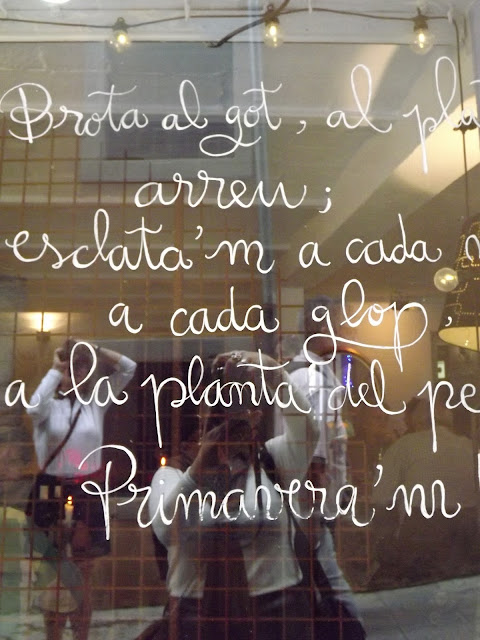 Brota al got, al
arreu;
esclata'm a cada
a cada glop,
a la planta del
Primavera'm